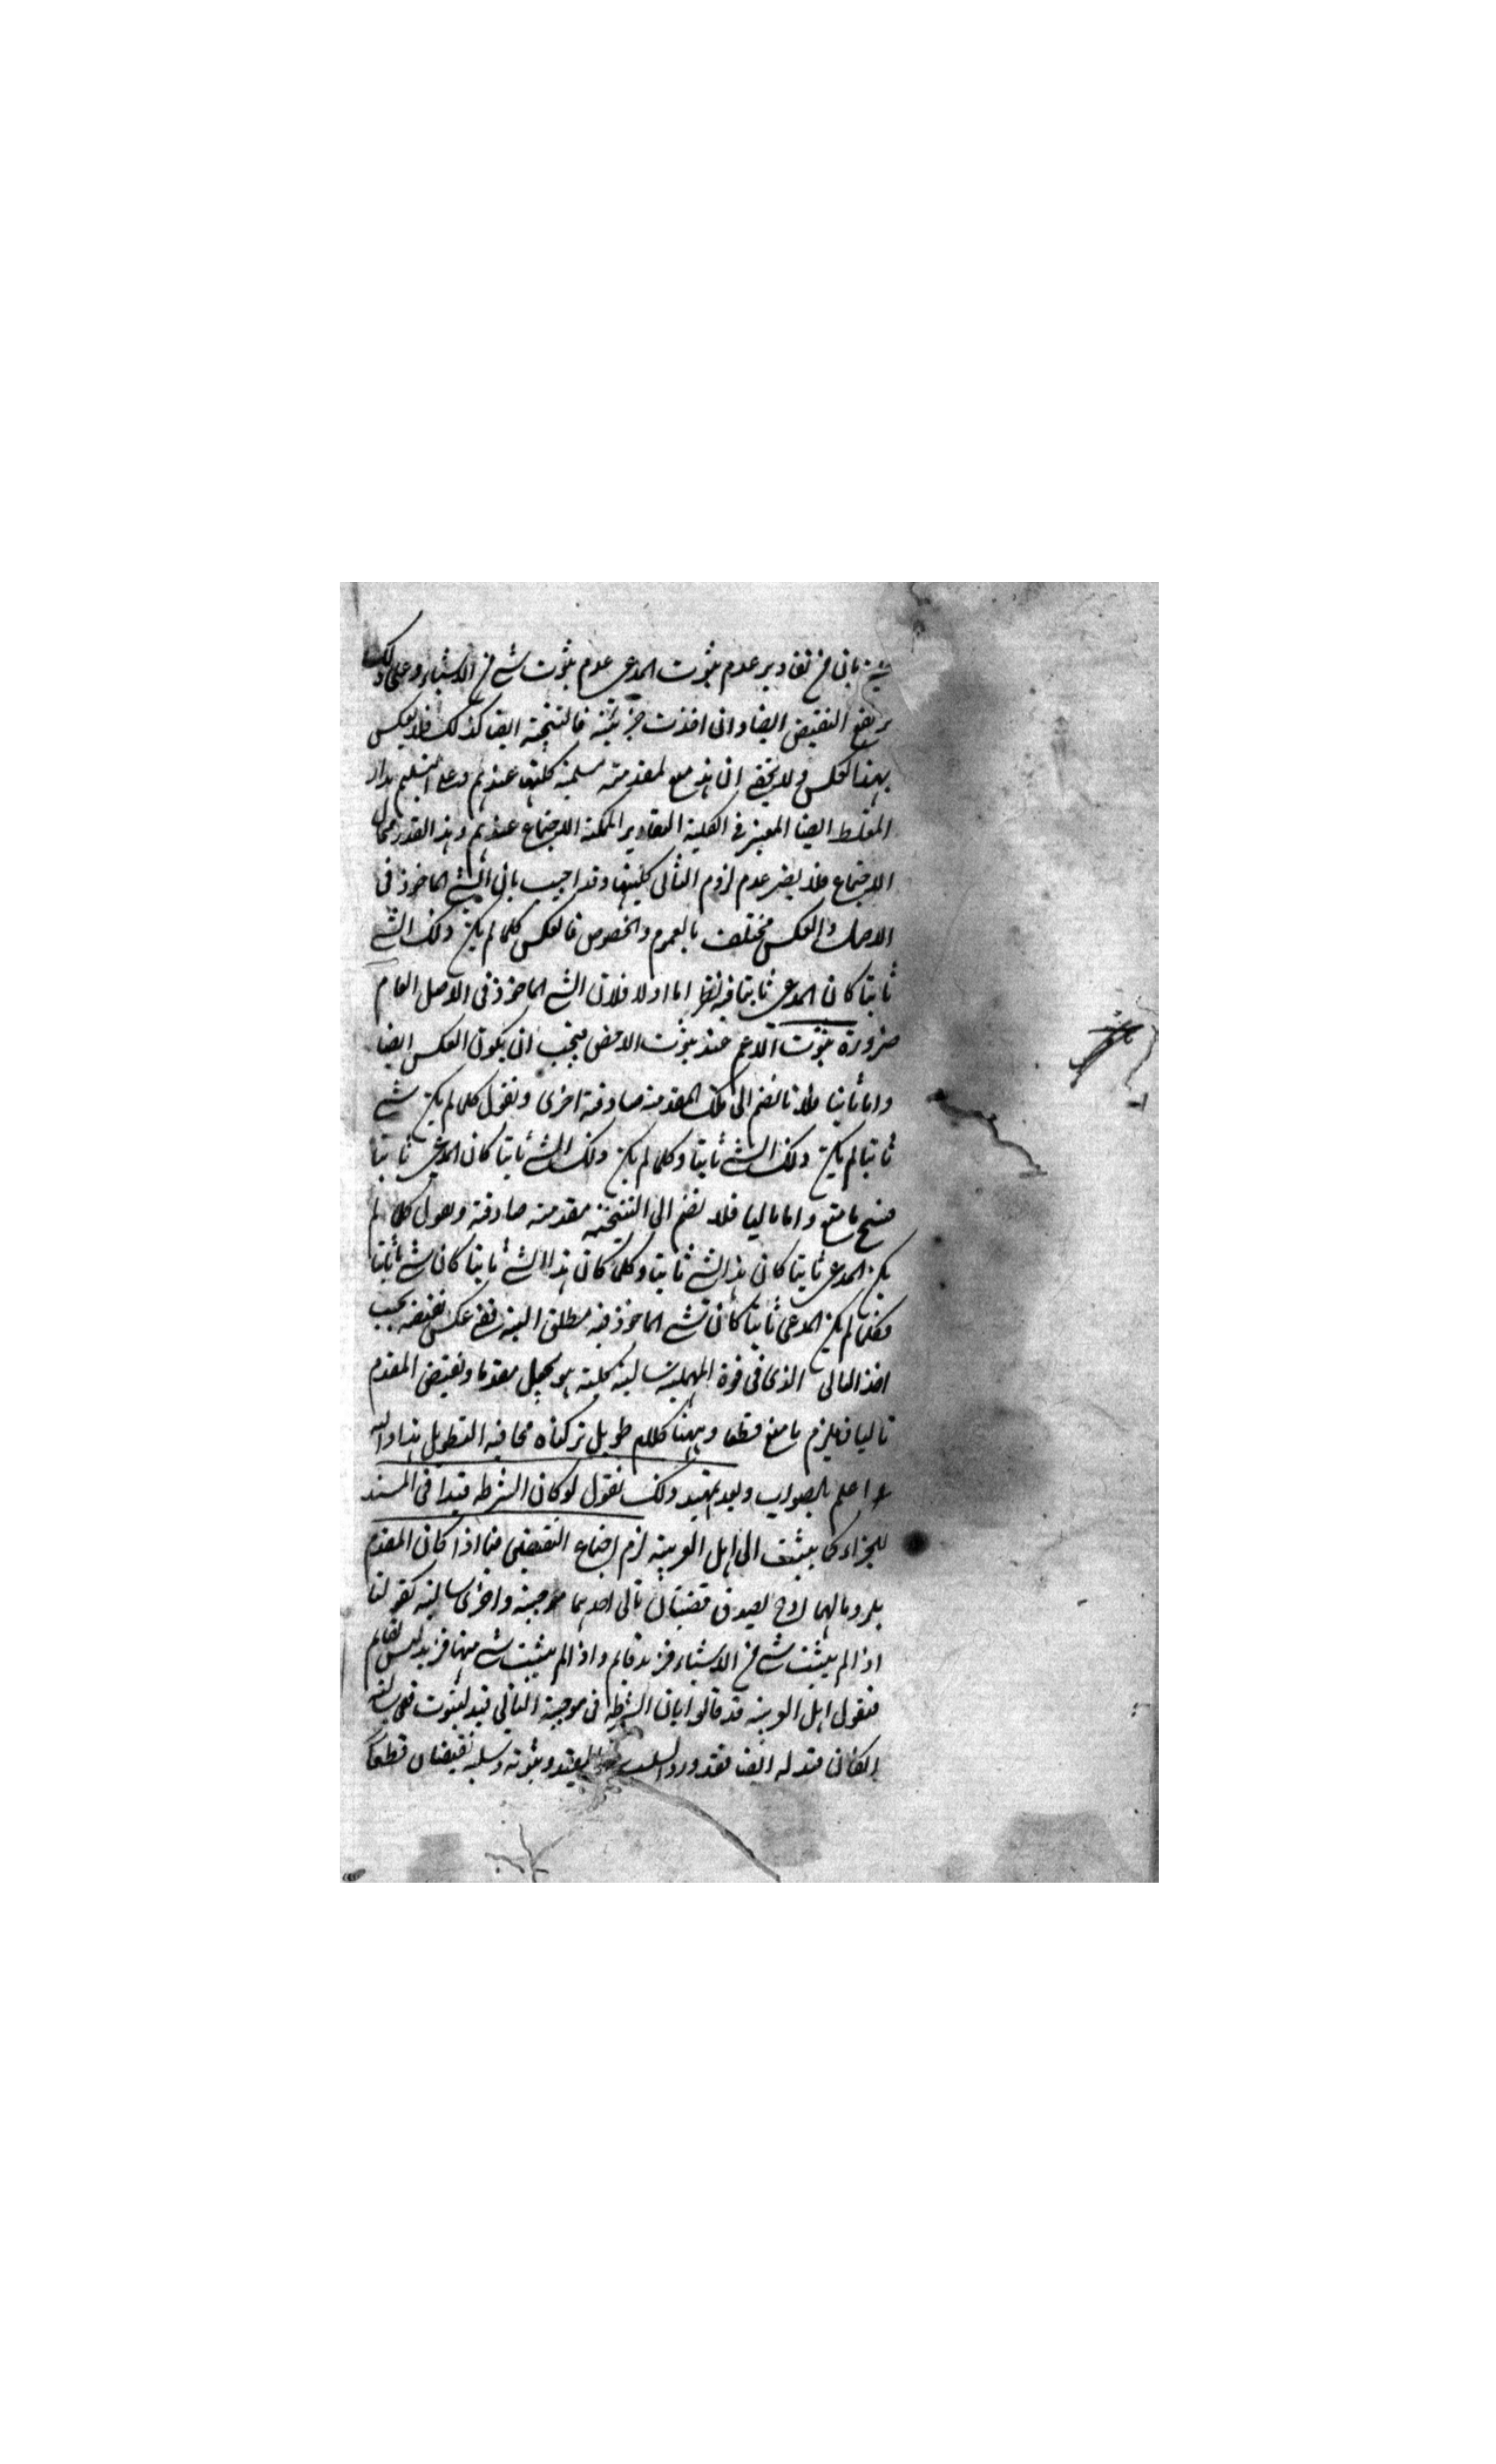 بان من تقادير عدم ثبوت المدعى عدم ثبوت شئ من الاشياء وعلى ذلك
يرتفع النقيض ايضا وان اخذت جزئية فالنتيجة ايضا كذلك فلا ينعكس
بهذا العكس ولا يخفى ان هذه مع لمقدمة مسلمية كليتها عندهم وعلى التسليم مدار
المغلط ايضا المعتبر فى الكلية التقادير الممكنة الاجتماع عندهم وهذا القدر محال
الاجتماع فلا يضر عدم لزوم التالى كليتها وقد اجيب بان الشئ الماخوذ فى
الاصل والعكس مختلف بالعموم والخصوص فالعكس كلما لم يكن ذلك الشئ
ثابتا كان المدعى ثابتا فيه نظر اما اولا فلان الشئ الماخوذ فى الاصل العام
ضرورة ثبوت الاعم عند ثبوت الاخص فيجب ان يكون العكس ايضا
واما ثانيا فلانا نضم الى تلك المقدمة صادقة اخرى ونقول كلما لم يكن شئ
ثابتا لم يكن ذلك الشئ ثابتا وكلما لم يكن ذلك الشئ ثابتا كان المدعى ثابتا
فينتج ما منع واما ثالثا فلا نضم الى النتيجة مقدمة صادقة ونقول كلما لم
يكن المدعى ثابتا كان هذا الشئ ثابتا وكلما كان هذا الشئ ثابتا كان شئ ثابتا
فكلما لم يكن المدعى ثابتا كان شئ الماخوذ فيه مطلق البتة ففى عكس نقيضه يجب
اخذ التالى الذى فى قوة المهملية سالبة كلية هو يجعل مقدما ونقيض المقدم
تاليا فيلزم ما منع قطعا وههنا كلام طويل تركناه مخافة التطويل هذا والله
اعلم بالصواب وبعد تمهيد ذلك نقول لو كان الشرط قيدا فى المسند
للجزاء كما ينسب الى اهل العربية لزم اجتماع النقيضين فيما اذا كان المقدم
ملزوما لهما اذ ح يصدق قضيتان تالى احدهما موجبة واخرى سالبة كقولنا
اذا لم يثبت شئ من الاشياء فزيد قائم واذا لم يثبت شئ منها فزيد ليس بقائم
فنقول اهل العربية قد قالوا بان الشرط فى موجبة التالى قيد لثبوت ففى سالبة
الثانى قيد له ايضا فقد ورد السلب وثبوته وسلبه نقيضان قطعا